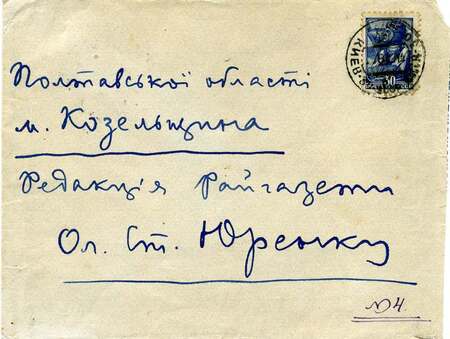 Полтавської області
м. Козельщина
Редакція Райгазети
Ол. Ст. Юренку
№ 4.
30
КИЕВ